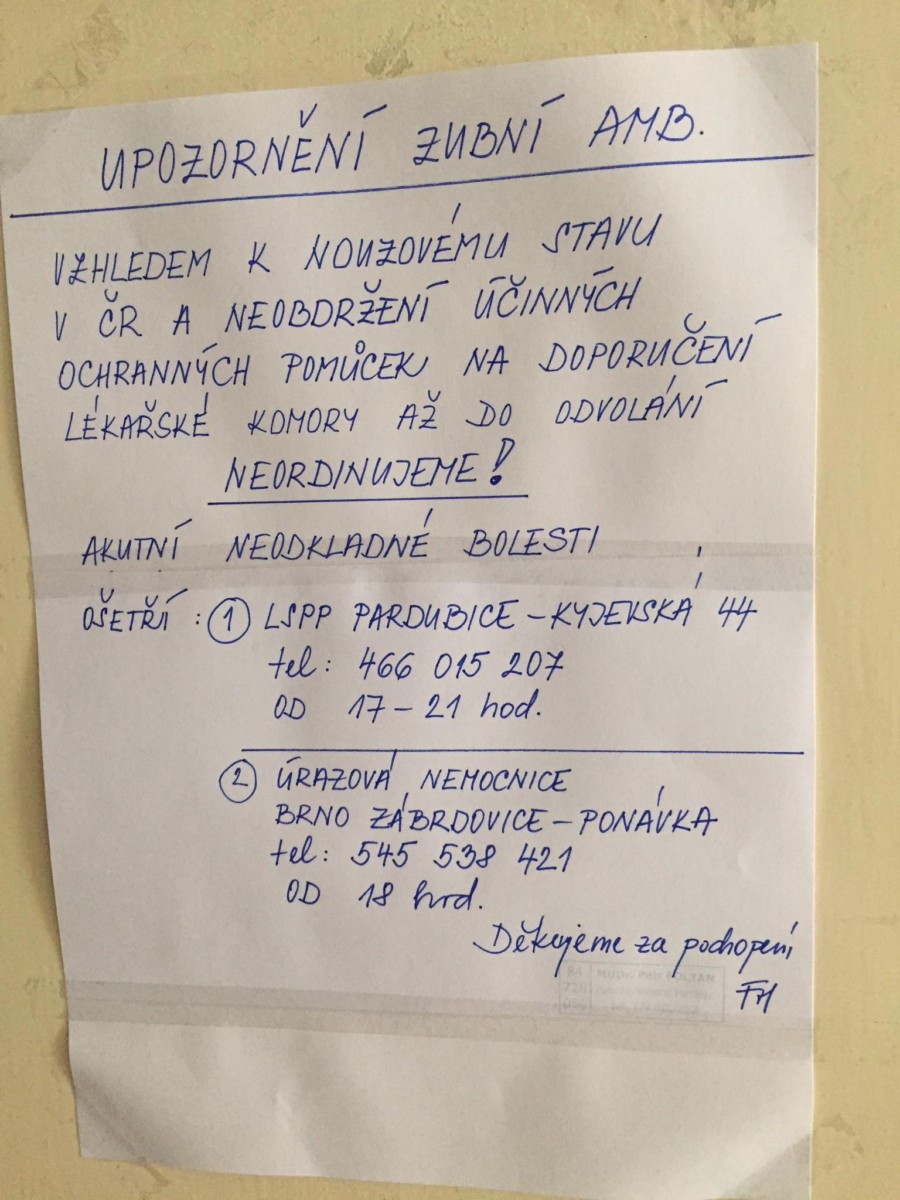 UPOZORNĚNÍ ZUBNÍ AMB.
VZHLEDEM K NOUZOVÉMU STAVU
V ČR A NEOBDRŽENÍ ÚČINNÝCH
OCHRANNÝCH POMŮCEK NA DOPORUČENÍ
LÉKAŘSKÉ KOMORY AŽ DO ODVOLÁNÍ
NEORDINUJEME!
AKUTNÍ NEODKLADNÉ BOLESTI
OŠETŘÍ: 1 LSPP PARDUBICE – KYJEVSKÁ 44
tel: 466 015 207
OD 17 – 21 hod.
2 ÚRAZOVÁ NEMOCNICE
BRNO ZÁBRDOVICE – PONÁVKA
tel: 545 538 421
OD 18 hod.
Děkujeme za pochopení
MUDr. Petr